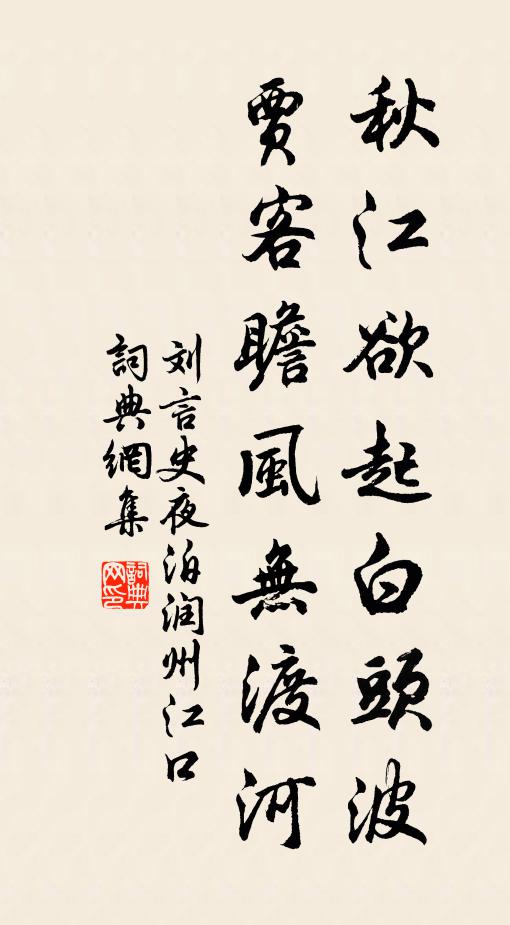 秋江欲起白頭波
賈客瞻風無渡河
刘言史夜泊润州江口
詞典網集
詞典网印